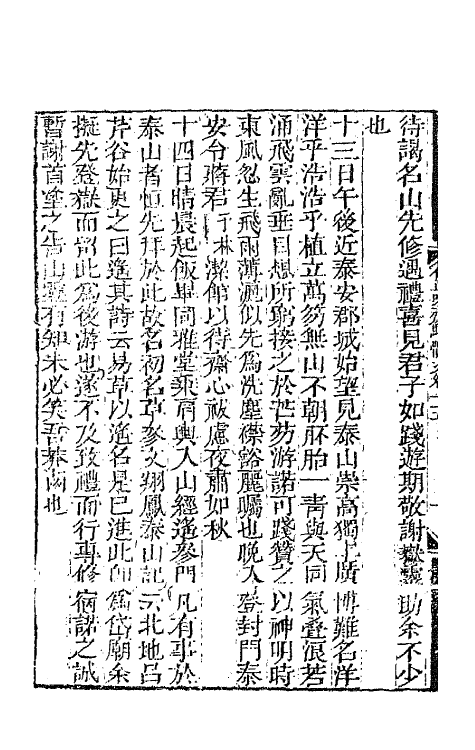 待謁名山先修遇禮喜見君子如踐遊期敬謝嶽靈助余不少
也
十三日午後近泰安郡城始望見泰山崇高獨上廣博難名洋
洋乎浩浩乎植立萬芴無山不朝胚胎一青與天同氣叠浪若
涌飛雲亂垂目想所窮接之於茫芴游諾可踐贊之以神明時
東風忽生飛雨薄灑似先爲洗塵襟豁麗矚也晚入登封門泰
安令蔣君行淋潔館以待齋心祓慮夜肅如秋
十四日晴晨起飯畢同雅堂乘肩輿入山經遙參門凡有事於
泰山者恒先拜於此故名初名草參文翔鳳泰山記云北地呂
芹谷始更之曰遙其詩云易草以遙名是已進此即爲岱廟余
擬先登嶽而留此爲後游也遂不及致禮而行專修宿諾之誠
暫謝首塗之告山靈有知未必笑吾莽鹵也